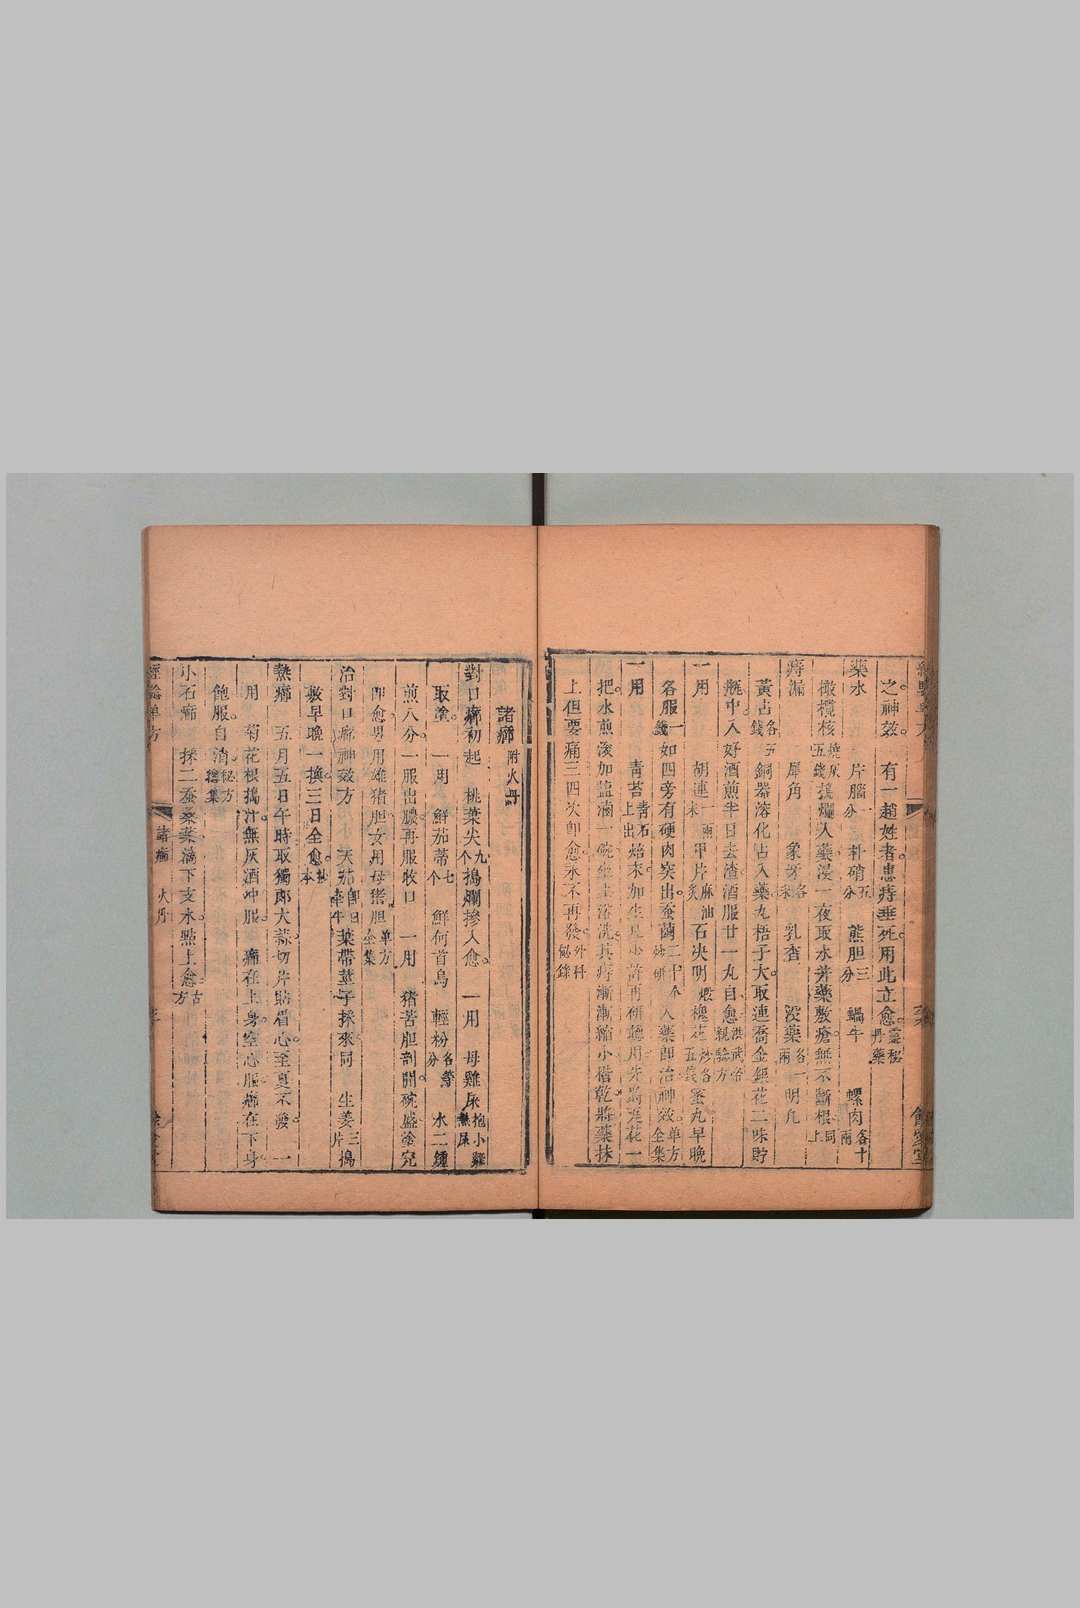 之神效 有一趙姓者患痔垂死用此立愈靈秘丹藥
藥水 片腦一分 朴硝五分 熊胆三分 蝸牛 螺肉各十兩
橄欖核燒灰五錢搗爛入藥浸一夜取水并藥敷瘡無不斷根同上
痔漏 犀角 象牙各 乳香 沒藥各一兩 明凡
黃占各五錢銅器溶化占入藥丸梧子大取連喬金銀花二味貯
瓶中入好酒煎半日去渣酒服廿一丸自愈洪武帝親驗方
一用 胡連一兩末 甲片麻油炙 石决明煆 槐花炒各五錢蜜丸早晚
各服一錢如四旁有硬肉突出蚕繭二十个炒研入藥卽治神效单方全集
一用 青苔青石上出焙末加生
把水煎浚加鹽滷一碗坐上浴洗其痔漸漸縮小揩乾將藥抹
上但要痛三四次即愈永不再發外科秘錄
諸癤附火丹
對口癤初起 桃葉尖九个搗爛摻入愈 一用 母雞屎抱小雞熱屎
取塗 一用 鮮茄蒂七个 鮮何首烏 輕粉各等分 水二鍾
煎八分一服出膿再服收口 一用 猪苦胆剖開碗盛塗完
即愈男用雄猪胆女用母猪胆单方全集
治對口癤神效方 天茄 葉帶莖子採來同 生姜三片搗
敷早晚一換三日全愈抄本
熱癤 五月五日午時取獨郎大蒜切片貼眉心至夏不發 一
用 菊花根搗汁無灰酒冲服 癤在上身空心服癤在下身
飽服自消秘方擔集
小石癤 採二蚕桑葉滴下支水點上愈古方
經驗单方
諸癤 火丹